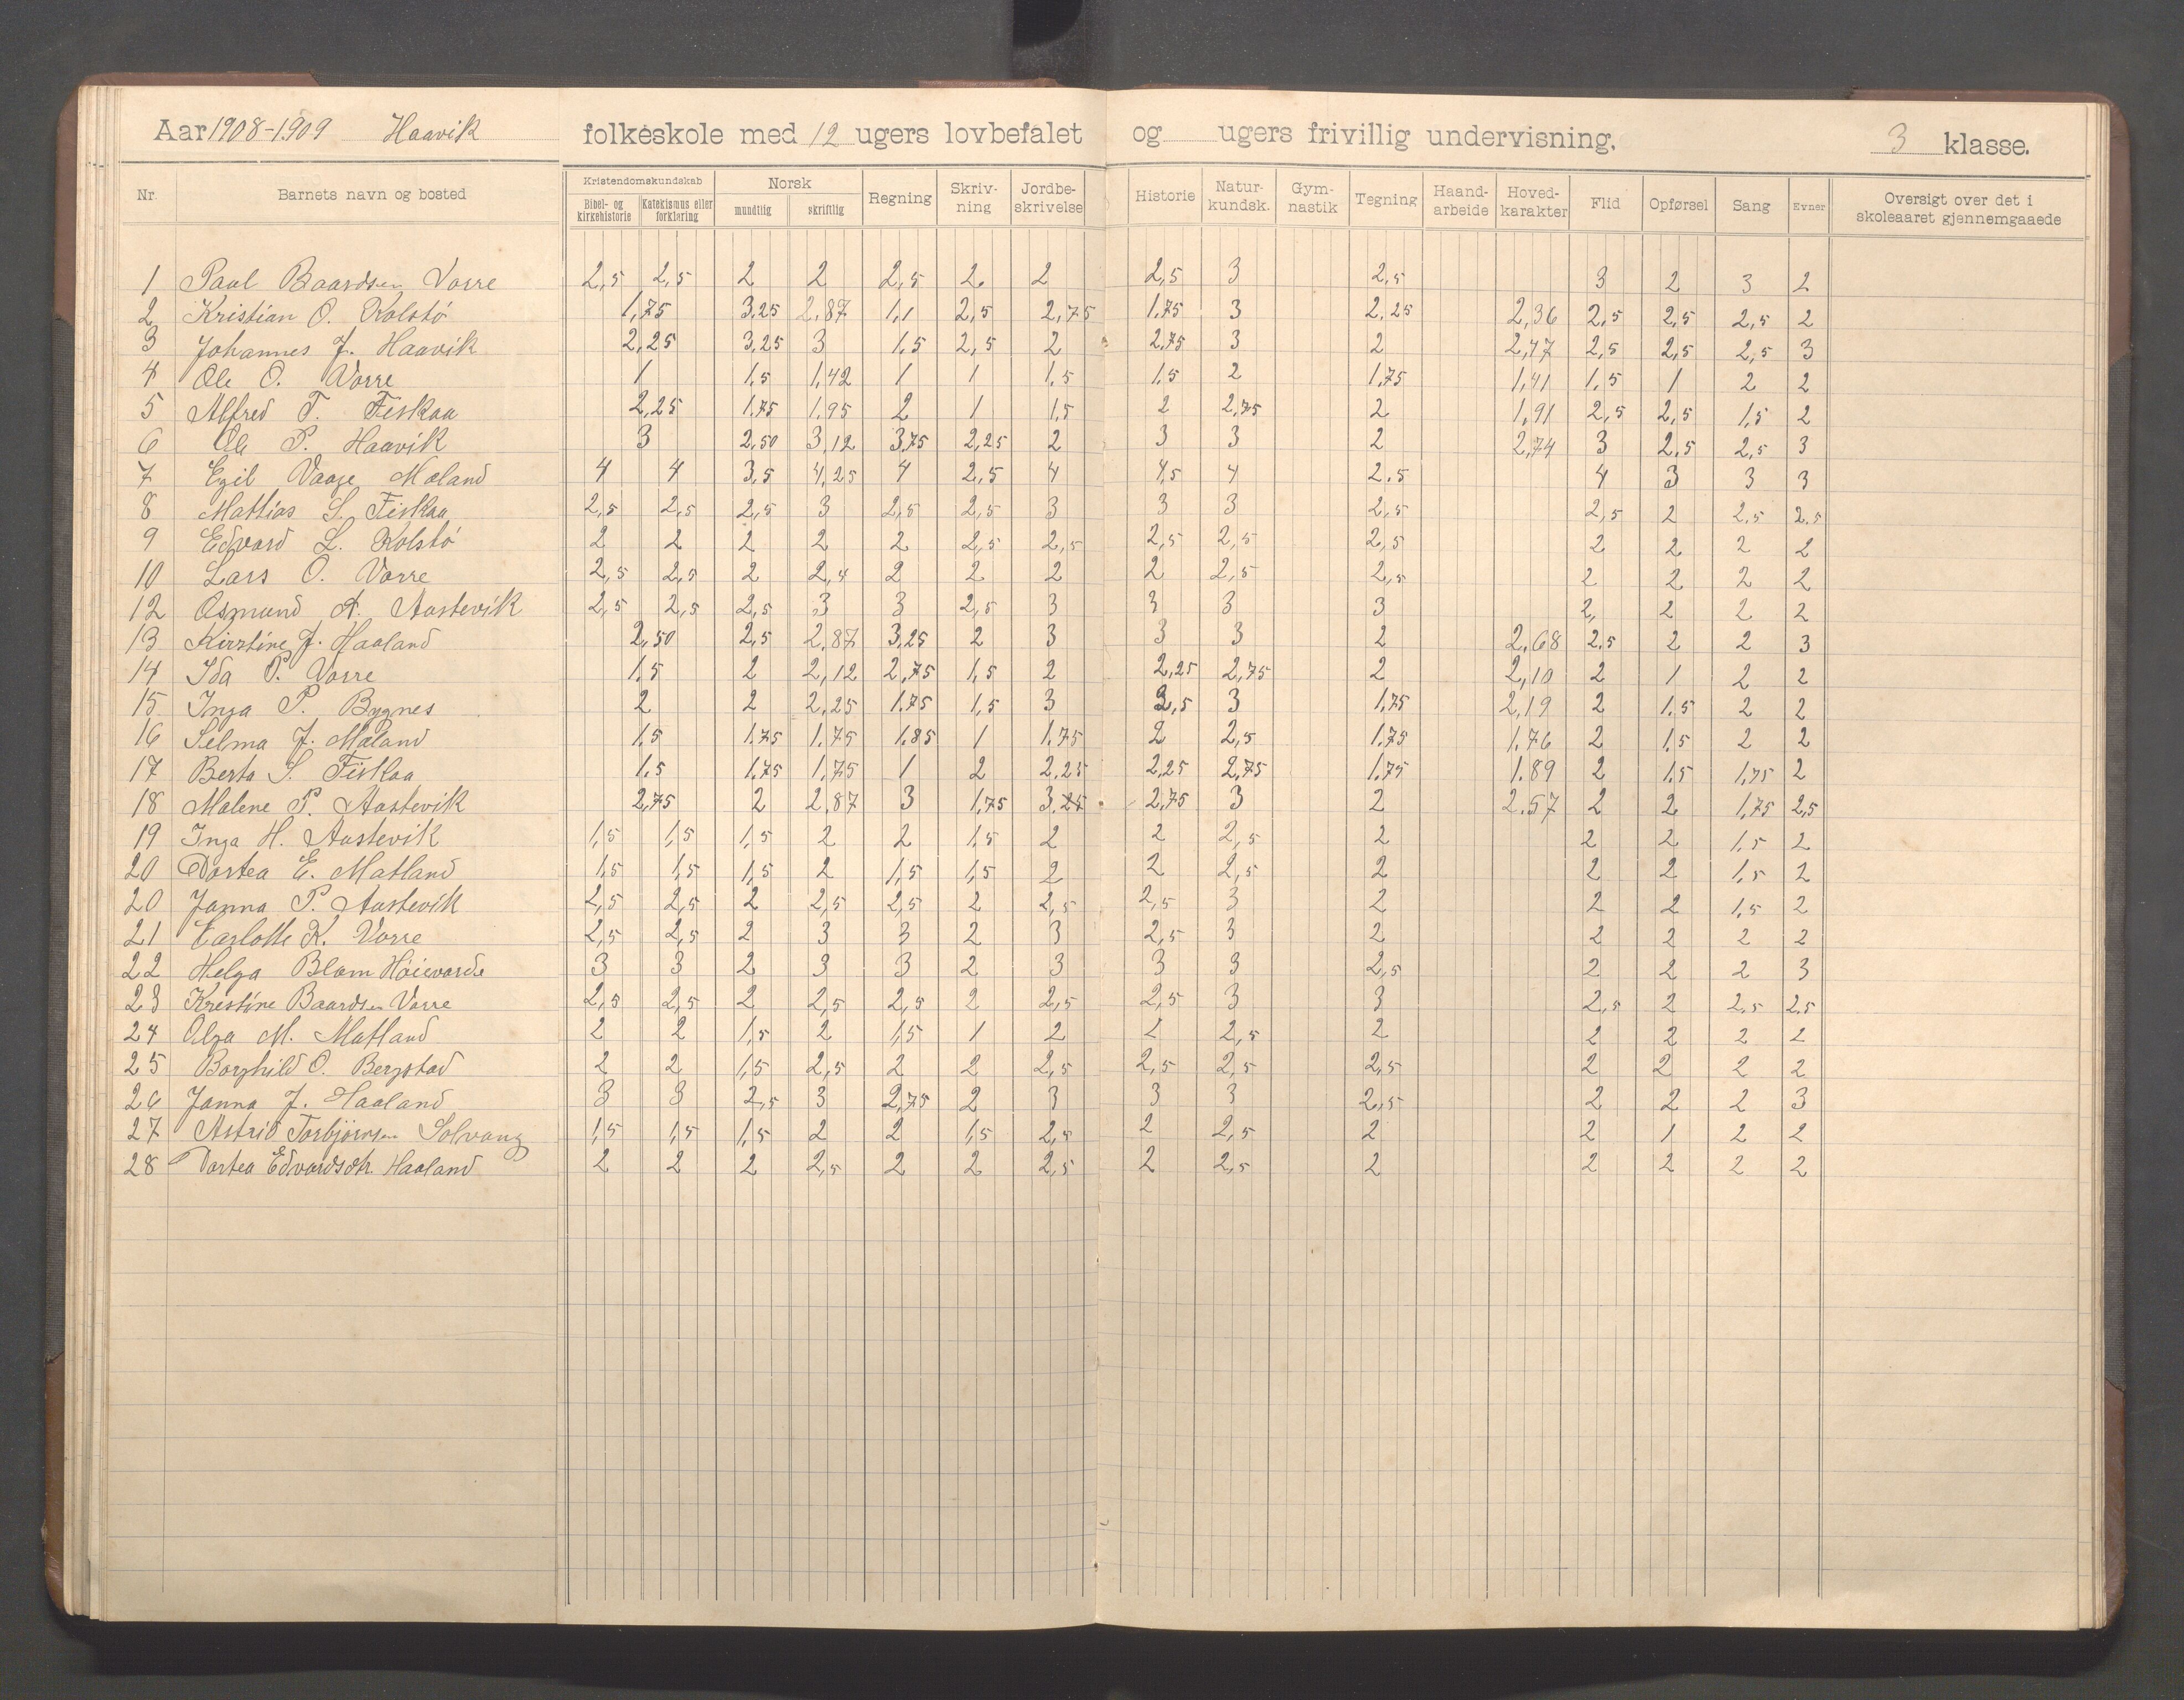 Aar 1908-1909 Haavik folkeskole med 12 ugers lovbefalet og ugers frivillig undervisning. 3 klasse.
Nr. Barnets navn og bosted Kristendomskundskab Bibel- og kirkehistorie Katekismus eller forklaring Norsk mundtlig skriftlig Regning Skriv-ning Jordbe-skrivelse Historie Natur-kundsk. Gym-nastik Tegning Haand-arbeide Hoved-karakter Flid Opførsel Sang Evner Oversigt over det i skoleaaret gjennemgaaede
1 Paul Baardsen Vorre 2,5 2,5 2 2 2,5 2. 2 2,5 3 2,5 3 2 3 2
2 Kristian O. Kolstö 1,75 3,25 2,87 1,1 2,5 2,75 1,75 3 2,25 2,36 2,5 2,5 2,5 2
3 Johannes J. Haavik 2,25 3,25 3 1,5 2,5 2 2,75 3 2 2,47 2,5 2,5 2,5 3
4 Ole O. Vorre 1 1,5 1,42 1 1 1,5 1,5 2 1,75 1,41 1,5 1 2 2
5 Alfred T. Fiskaa 2,25 1,75 1,95 2 1 1,5 2 2,75 2 1,91 2,5 2,5 1,5 2
6 Ole P. Haavik 3 2,50 3,12 3,75 2,25 2 3 3 2 2,74 3 2,5 2,5 3
7 Egil Vaage Mæland 4 4 3,5 4,25 4 2,5 4 4,5 4 2.5 4 3 3 3
8 Mathias S. Fiskaa 2,5 2,5 2,5 3 2,5 2,5 3 3 3 2,5 2,5 2 2,5 2.5
9 Edvard L. Kolstö 2 2 2 2 2 2,5 2,5 2,5 2,5 2,5 2 2 2 2
10 Lars O. Vorre 2,5 2,5 2 2,4 2 2 2 2 2,5 2,5 2 2 2 2
12 Osmund A. Aastevik 2,5 2,5 2,5 3 3 2,5 3 3 3 3 2, 2 2 2
13 Kirstine J. Haaland 2,50 2,5 2,87 3,25 2 3 3 3 2 2,68 2,5 2 2 3
14 Ida P. Vorre 1,5 2 2,12 2,75 1,5 2 2,25 2,75 2 2,10 2 1 2 2
15 Inga P. Bygnes 2 2 2,25 1,75 1,5 3 2,5 3 1,75 2,19 2 1,5 2 2
16 Selma J. Mæland 1,5 1,75 1,75 1,85 1 1,75 2 2,5 1,75 1,76 2 1,5 2 2
17 Berta S. Fiskaa 1,5 1,75 1,75 1 2 2,25 2,25 2,75 1,75 1.89 2 1,5 1,75 2
18 Malene P. Aastevik 2,75 2 2,87 3 1,75 3,25 2,75 3 2 2.57 2 2 1,75 2,5
19 Inga H. Aastevik 1,5 1,5 1,5 2 2 1,5 2 2 2,5 2 2 2 1,5 2
20 Dortea E. Matland 1,5 1,5 1,5 2 1,5 1,5 2 2 2,5 2 2 2 1,5 2
20 Janna P. Aastevik 2,5 2,5 2 2,5 2,5 2 2,5 2,5 3 2 2 2 1,5 2
21 Carlotte K. Vorre 2,5 2,5 2 3 3 2 3 2,5 3 2 2 2 2 2
22 Helga Blom Höievarde 3 3 2 3 3 2 3 3 3 2,5 2 2 2 3
23 Krestine Baardsen Vorre 2,5 2,5 2 2,5 2,5 2 2,5 2,5 3 3 2,5 2 2.5 2.5
24 Olga M. Matland 2 2 1,5 2 1,5 1 2 2 2,5 2 2 2 2 2
25 Borghild O. Bergstad 2 2 1,5 2,5 2 2 2,5 2,5 2,5 2,5 2 2 2 2
26 Janna J. Haaland 3 3 2,5 3 2,75 2 3 3 3 2,5 2 2 2 3
27 Astrid Torbjörnsen Solvang 1,5 1,5 1,5 2 2 1,5 2,5 2 2,5 2 2 1 2 2
28 Dortea Edvardsdtr Haaland 2 2 2 2,5 2 2 2,5 2 2,5 2 2 2 2 2